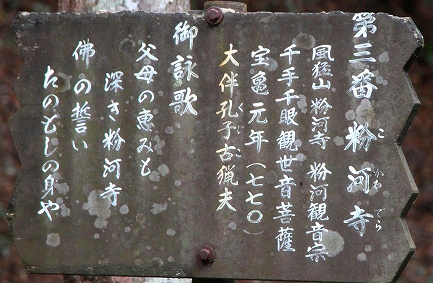 第三番 粉河寺
こかわでら
風猛山 粉河寺 粉河観音宗
千手千眼観世音菩薩
宝亀元年(七七〇)
大伴孔子古猟夫
くじこ
御詠歌
父母の恵みも
深き粉河寺
佛の誓い
たのもしの身や